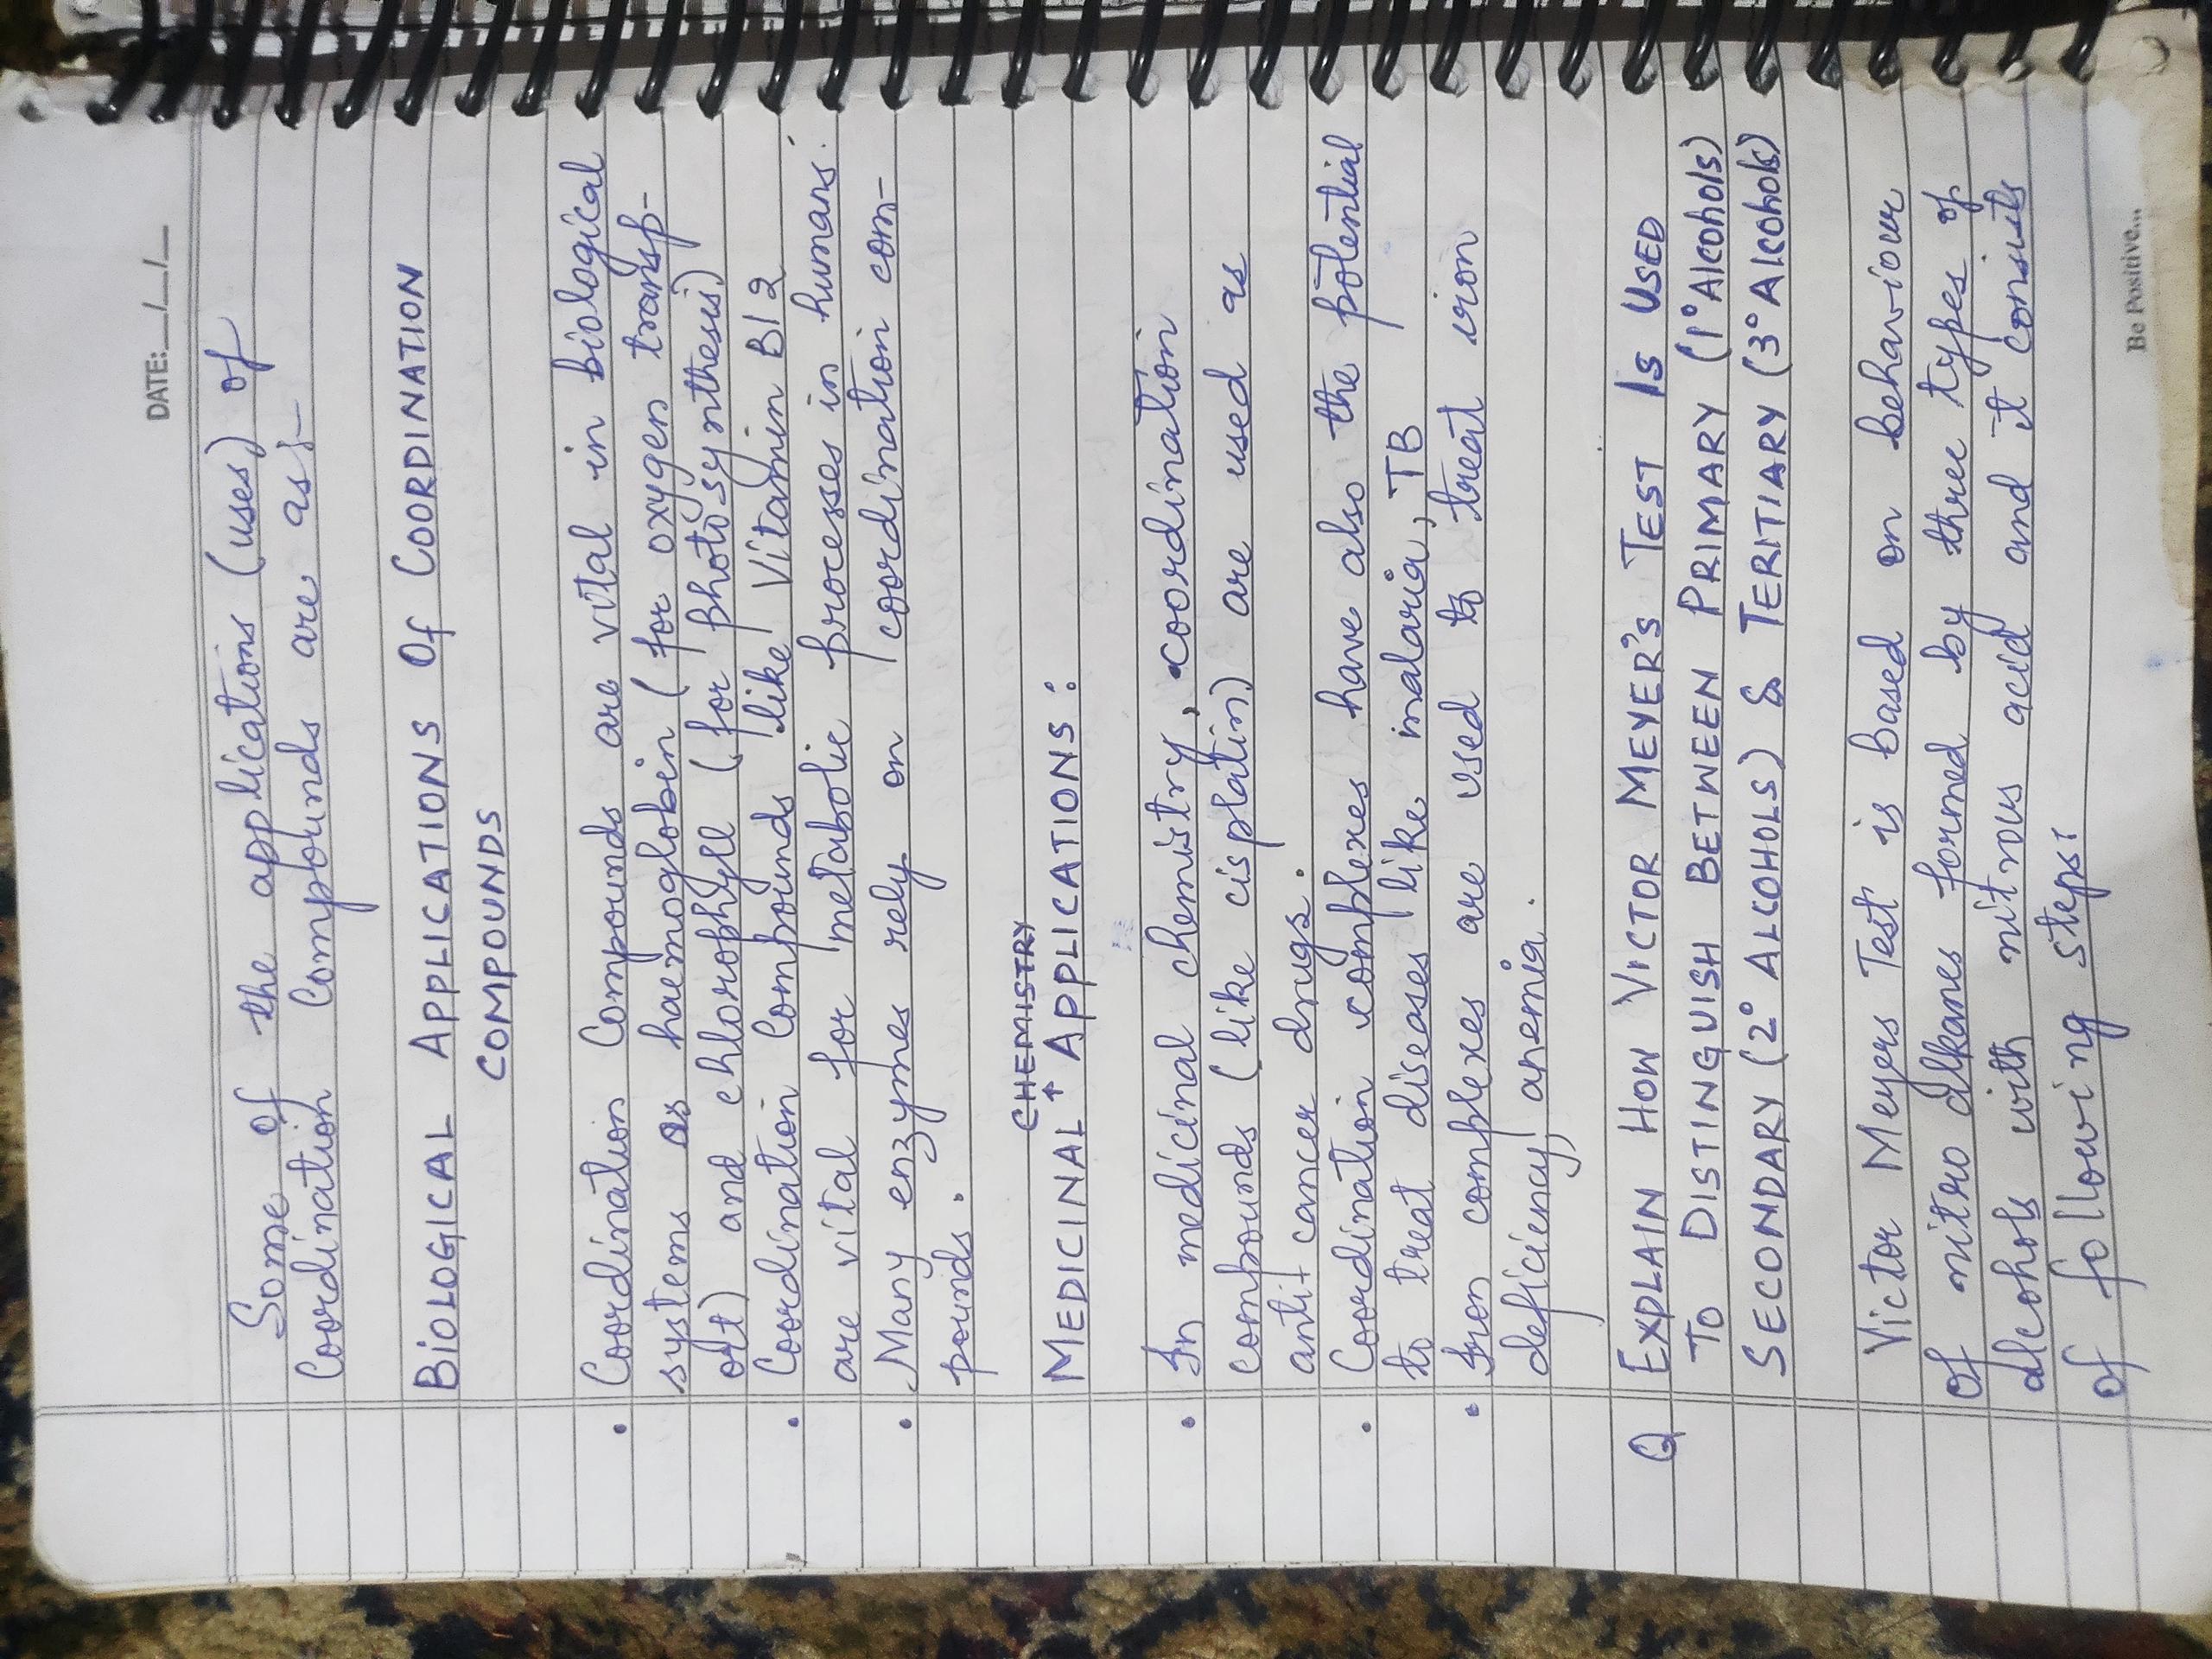 DATE:__/__/__
Some of the applications (uses) of
Coordination Compounds are as:-
BIOLOGICAL APPLICATIONS OF COORDINATION
COMPOUNDS
• Coordination Compounds are vital in biological
systems as haemoglobin (for oxygen transp-
ort) and chlorophyll (for photosynthesis)
• Coordination Compounds like Vitamin B12
are vital for metabolic processes in humans.
• Many enzymes rely on coordination com-
pounds.
CHEMISTRY
MEDICINAL ↑ APPLICATIONS :
• In medicinal chemistry, coordination
compounds (like cisplatin) are used as
anti-cancer drugs.
• Coordination complexes have also the potential
to treat diseases like malaria, TB
• Iron complexes are used to treat iron
deficiency anemia.
Q EXPLAIN HOW VICTOR MEYER'S TEST IS USED
TO DISTINGUISH BETWEEN PRIMARY (1° Alcohols)
SECONDARY (2° ALCOHOLS) & TERITIARY (3° Alcohols)
Victor Meyers Test is based on behaviour
of nitro alkanes formed by three types of
alcohols with nitrous acid and it consists
of following steps:
Be Positive...